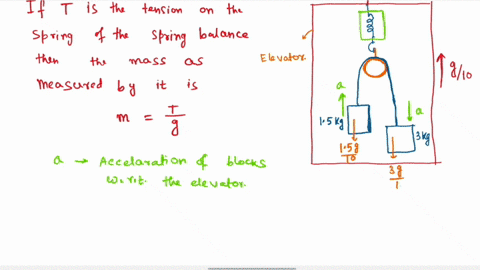 If T is the tension on the
Spring of the spring balance
then the mass as
measured by it is
m = T/g
a → Accelaration of blocks
w.r.t. the elevator.
Elevator
g/10
a
a
1.5kg
3kg
1.5g/10
3g/1